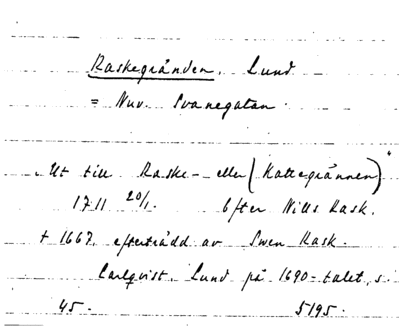 Raskegränden, Lund
= Nuv. Svanegatan.
"Ut till Raske- eller (Kattegrännen)"
1711 20/1. Efter Nills Rask.
+ 1667, efterträdd av Swen Rask.
Carlqvist, Lund på 1690-talet, s.
45. 5195.